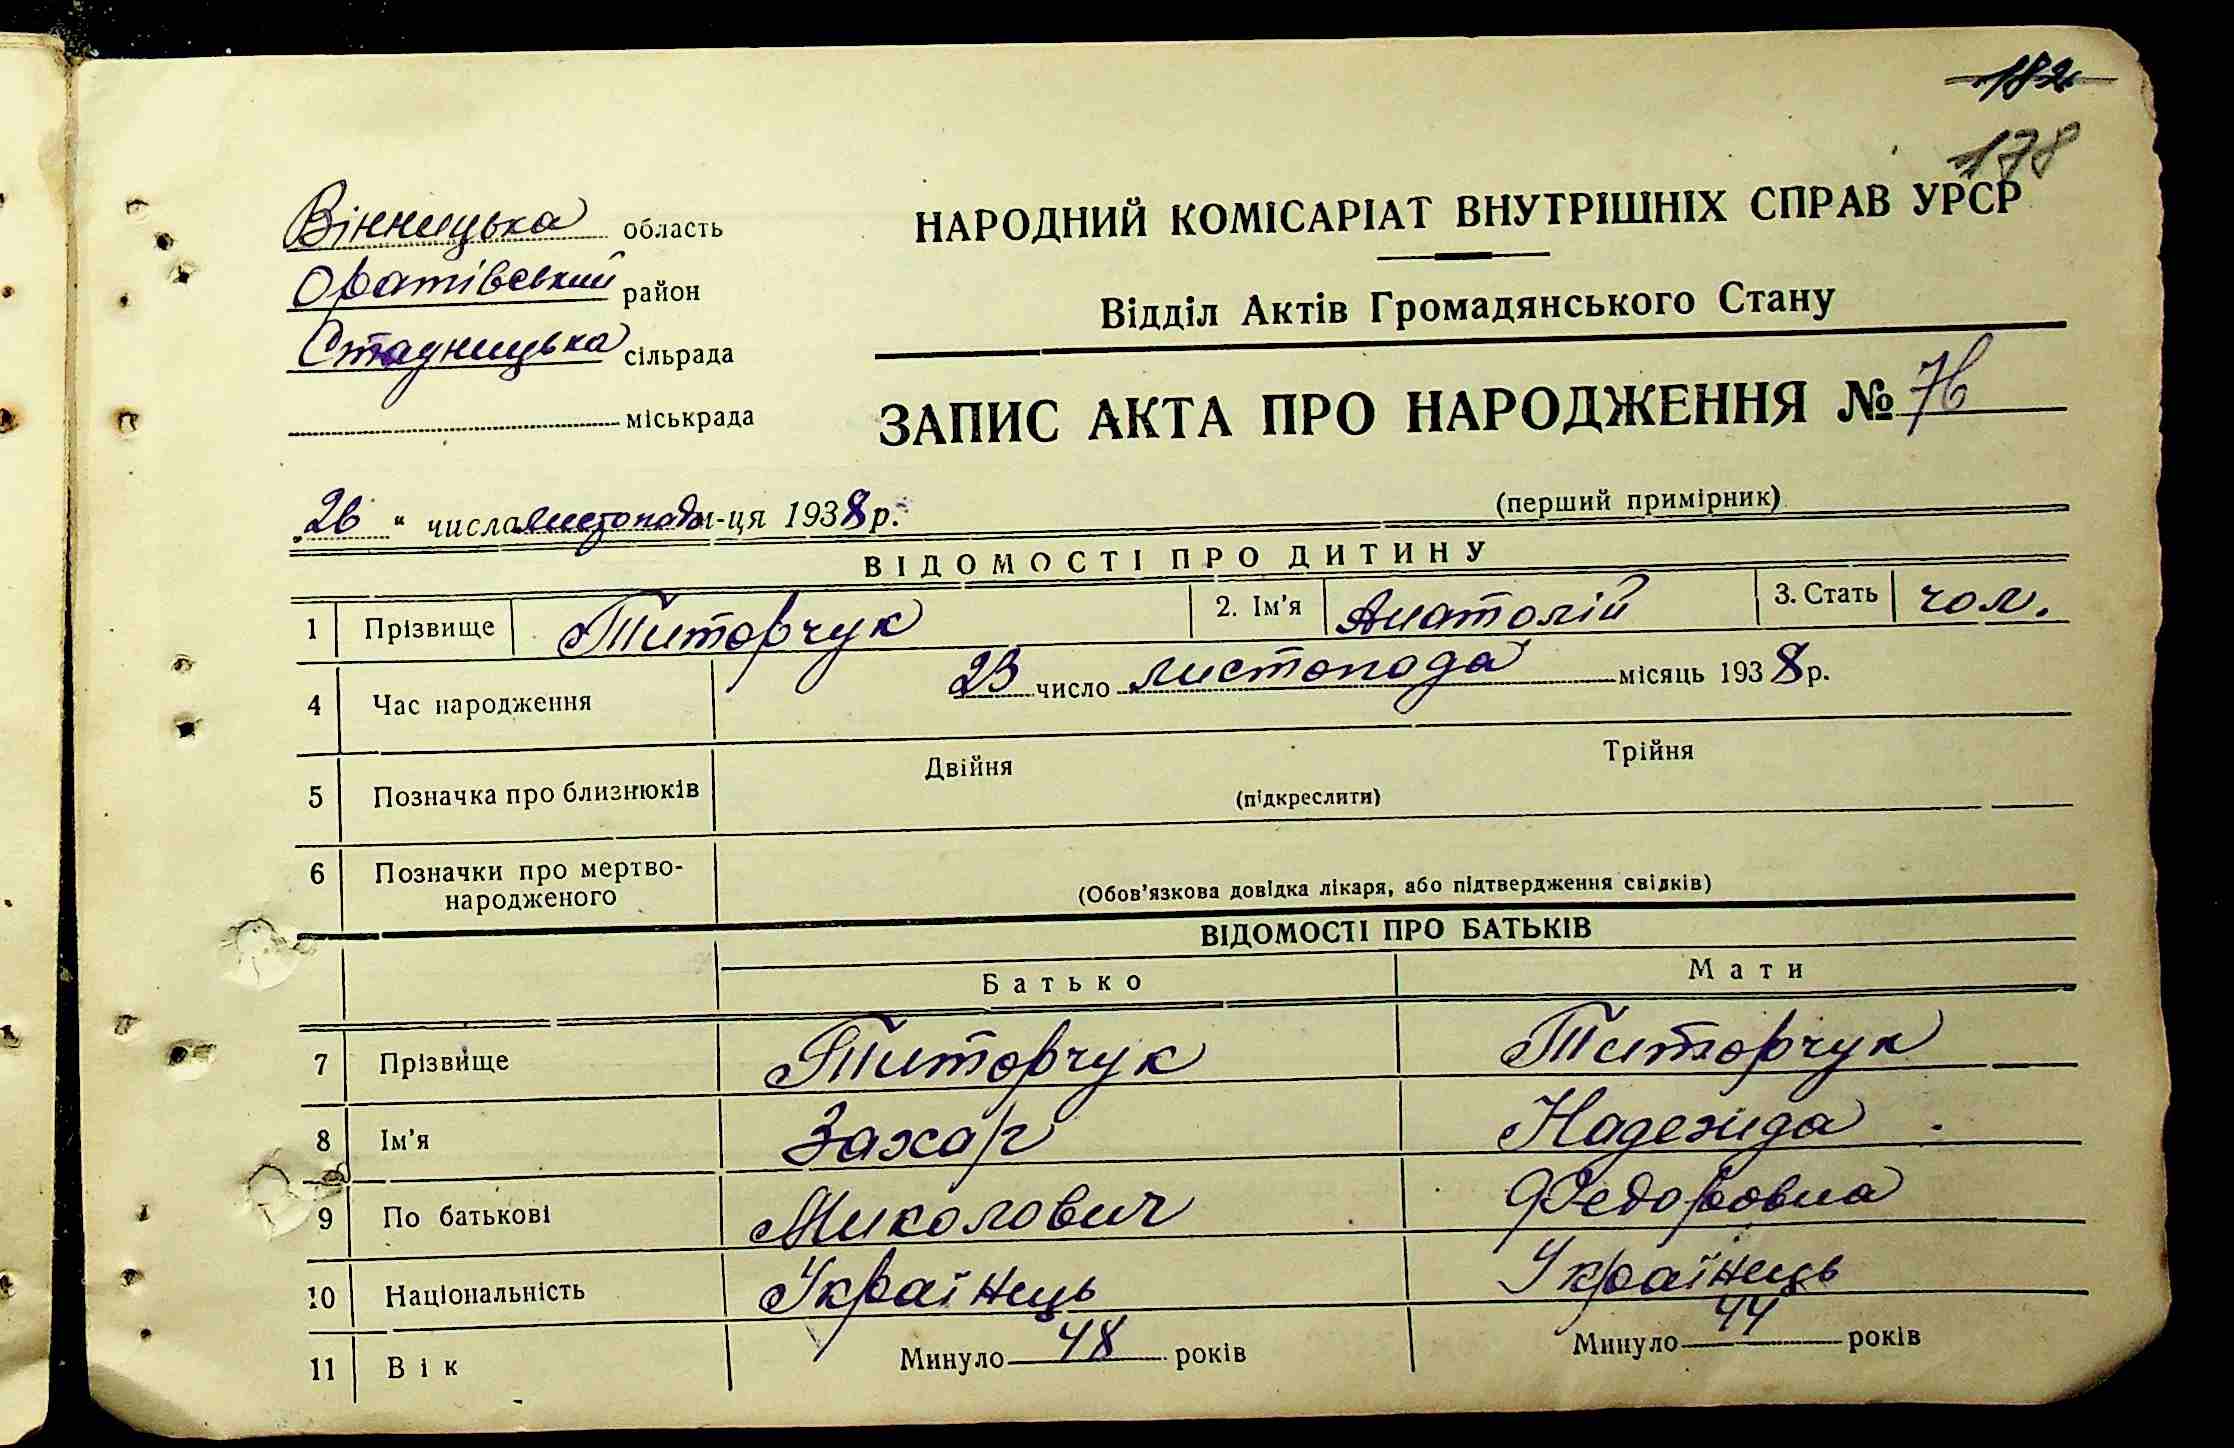 182
178
Вінницька область
Оратівський район
Стадницька сільрада
міськрада
НАРОДНИЙ КОМІСАРІАТ ВНУТРІШНІХ СПРАВ УРСР
Відділ Актів Громадянського Стану
ЗАПИС АКТА ПРО НАРОДЖЕННЯ № 76
(перший примірник)
„26“ числа листопада м-ця 1938 р.
ВІДОМОСТІ ПРО ДИТИНУ
1 Прізвище Титорчук 2. Ім'я Анатолій 3. Стать чол.
4 Час народження 23 число листопода місяць 1938 р.
5 Позначка про близнюків Двійня Трійня
(підкреслити)
6 Позначки про мертво-
народженого
(Обов'язкова довідка лікаря, або підтвердження свідків)
ВІДОМОСТІ ПРО БАТЬКІВ
Батько Мати
7 Прізвище Титорчук Титорчук
8 Ім'я Захар Надежида
9 По батькові Миколович Федоровна
10 Національність Українець Українець
11 Вік Минуло 48 років Минуло 44 років